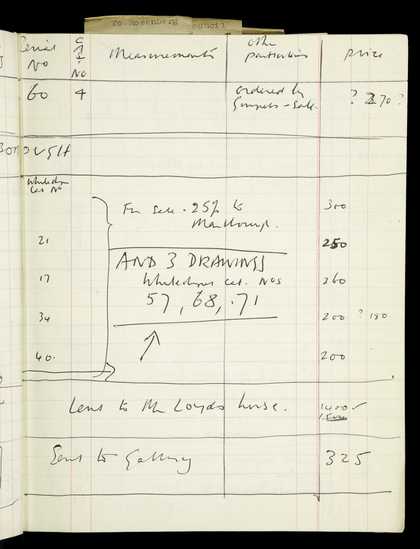 Serial No
C A T. No
Measurements
other particulars
price
60 4 ordered by
? 270 ?
OUGH
Whitechapel
Cat No
For sale. 25% to
Marlborough.
300
21 250
AND 3 DRAWINGS
17 Whitechapel cat. Nos 260
57, 68, 71
34 200 ? 150
40. 200
Lent to Mr Loyds house. 1400
Sent to Gallery 325